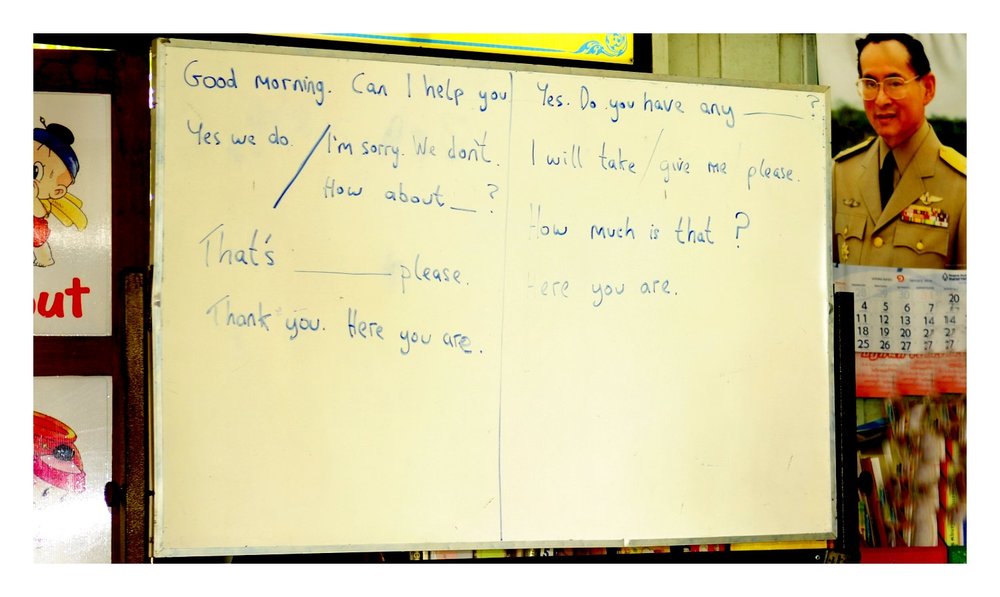 Good morning. Can I help you
Yes we do. / I'm sorry. We don't.
How about __ ?
That's ________ please.
Thank you. Here you are.
Yes. Do you have any ______ ?
I will take / give me please.
How much is that ?
Here you are.
out
20
4 5 6 7
11 12 13 14
18 19 20 21
25 26 27